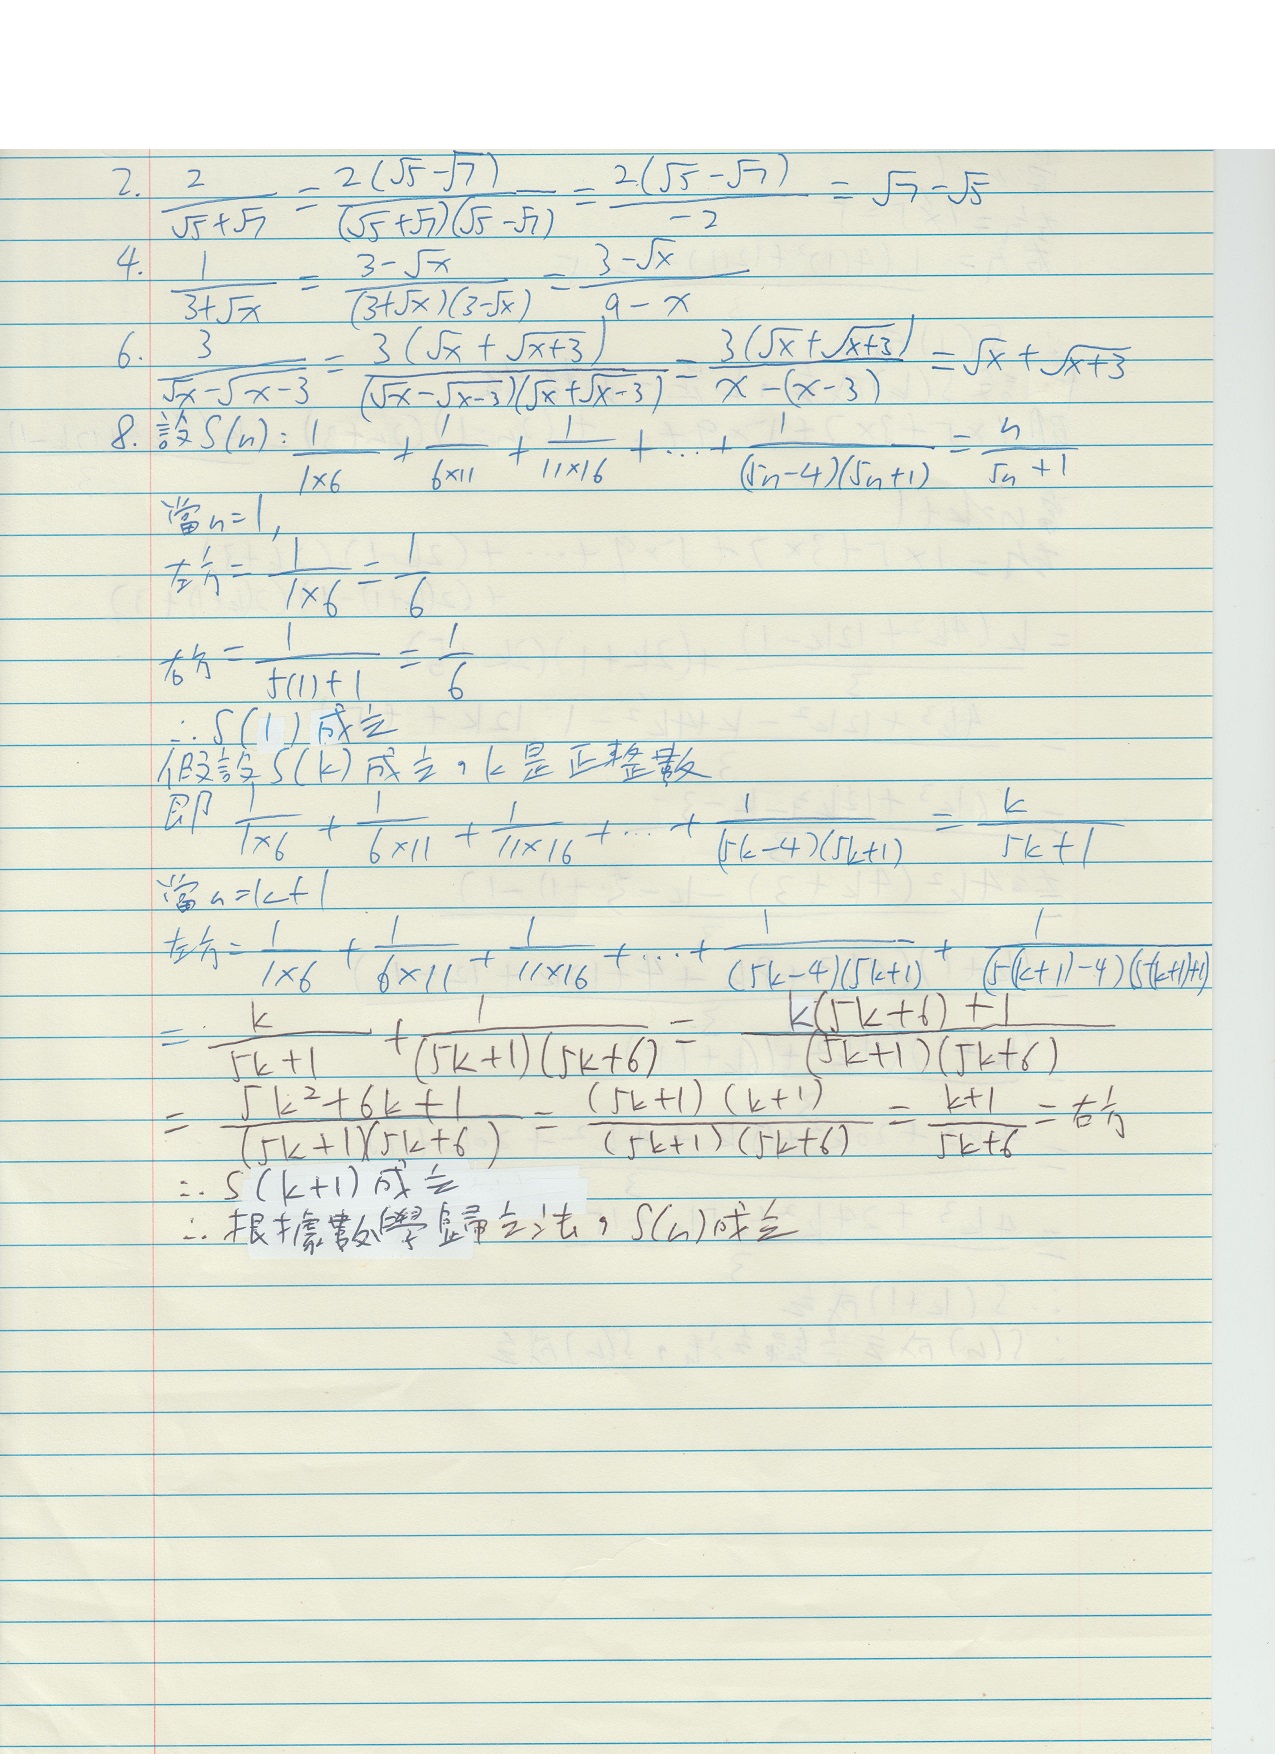 2. 2/(√5+√7) = 2(√5-√7)/((√5+√7)(√5-√7)) = 2(√5-√7)/(-2) = √7-√5
4. 1/(3+√x) = (3-√x)/((3+√x)(3-√x)) = (3-√x)/(9-x)
6. 3/(√x-√(x-3)) = 3(√x+√(x+3))/((√x-√(x-3))(√x+√(x-3))) = 3(√x+√(x+3))/(x-(x-3)) = √x+√(x+3)
8. 設S(n): 1/(1×6) + 1/(6×11) + 1/(11×16) + … + 1/((5n-4)(5n+1)) = n/(5n+1)
當n=1,
左方= 1/(1×6) = 1/6
右方= 1/(5(1)+1) = 1/6
∴S(1)成立
假設S(k)成立,k是正整數
即 1/(1×6) + 1/(6×11) + 1/(11×16) + … + 1/((5k-4)(5k+1)) = k/(5k+1)
當n=k+1
左方= 1/(1×6) + 1/(6×11) + 1/(11×16) + … + 1/((5k-4)(5k+1)) + 1/((5(k+1)-4)(5(k+1)+1))
= k/(5k+1) + 1/((5k+1)(5k+6)) = (k(5k+6)+1)/((5k+1)(5k+6))
= (5k²+6k+1)/((5k+1)(5k+6)) = ((5k+1)(k+1))/((5k+1)(5k+6)) = (k+1)/(5k+6) = 右方
∴S(k+1)成立
∴根據數學歸立法,S(n)成立